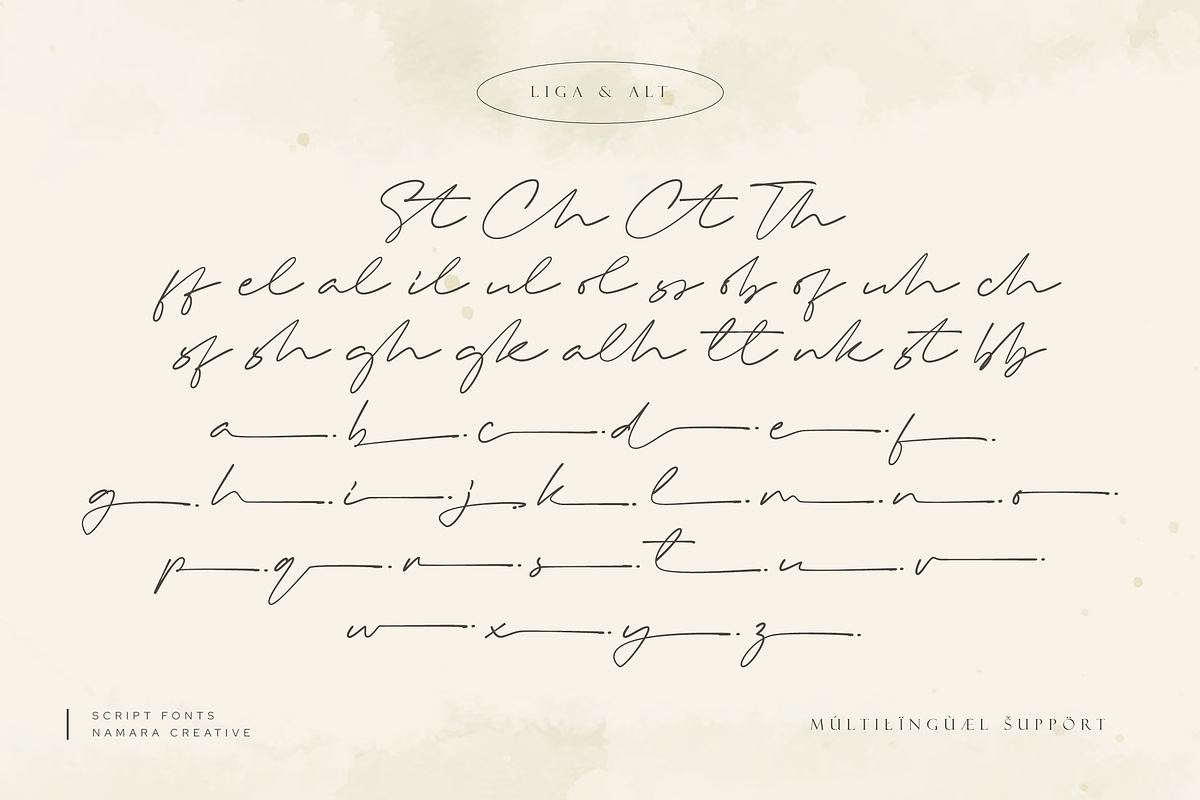 LIGA & ALT
St Ch Ct Th
ff el al il ul ol ss ob of uh ch
sf sh gh gk alh tt nk st bb
a b c d e f
g h i j k l m n o
p q r s t u v
w x y z
SCRIPT FONTS
NAMARA CREATIVE
MÚLTILÏNGÙÆL ŠUPPÖRT